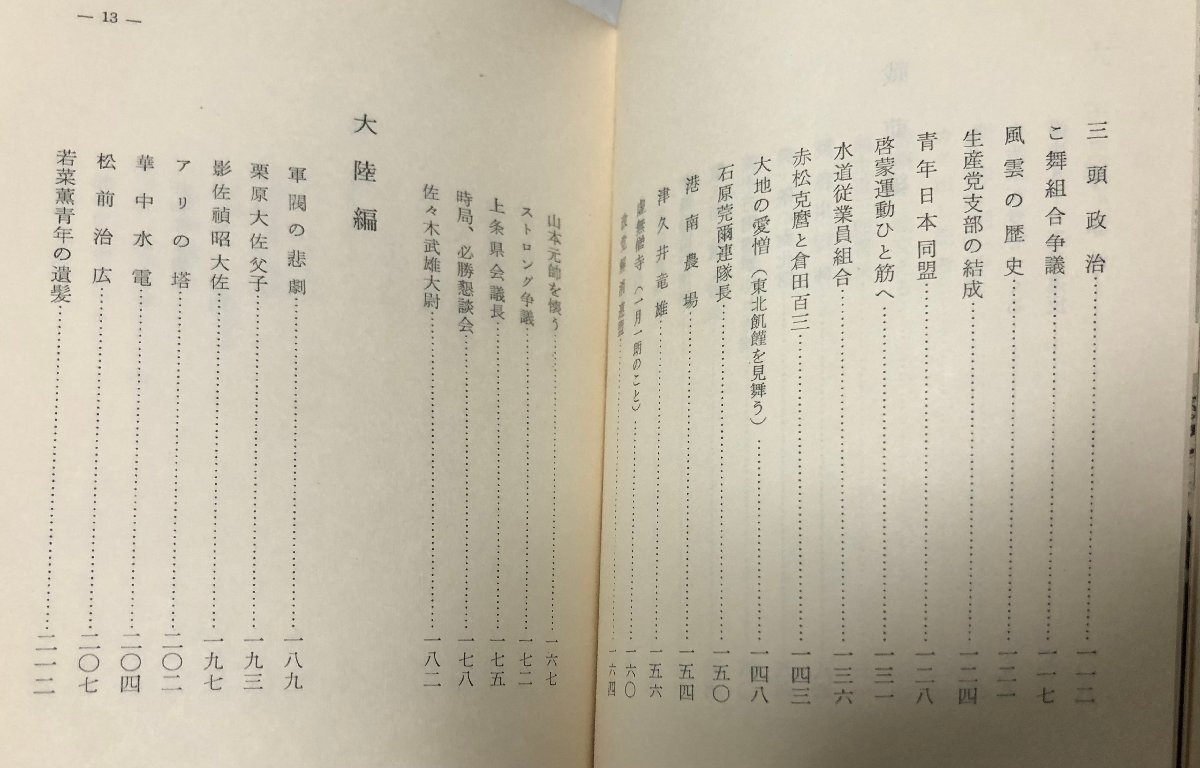 三頭政治……一一二
こ舞組合争議……一一七
風雲の歴史……一二一
生産党支部の結成……一二四
青年日本同盟……一二八
啓蒙運動ひと筋へ……一三一
水道従業員組合……一三六
赤松克麿と倉田百三……一四三
大地の愛憎（東北飢饉を見舞う）……一四八
石原莞爾連隊長……一五〇
港南農場……一五四
津久井竜雄……一五六
虚無僧寺（一月一朗のこと）……一六〇
解消連盟……一六四
山本元帥を懐う……一六七
ストロング争議……一七二
上条県会議長……一七五
時局、必勝懇談会……一七八
佐々木武雄大尉……一八二
大陸編
軍閥の悲劇……一八九
栗原大佐父子……一九三
影佐禎昭大佐……一九七
アリの塔……二〇二
華中水電……二〇四
松前治広……二〇七
若菜薫青年の遺髪……二一二
— 13 —